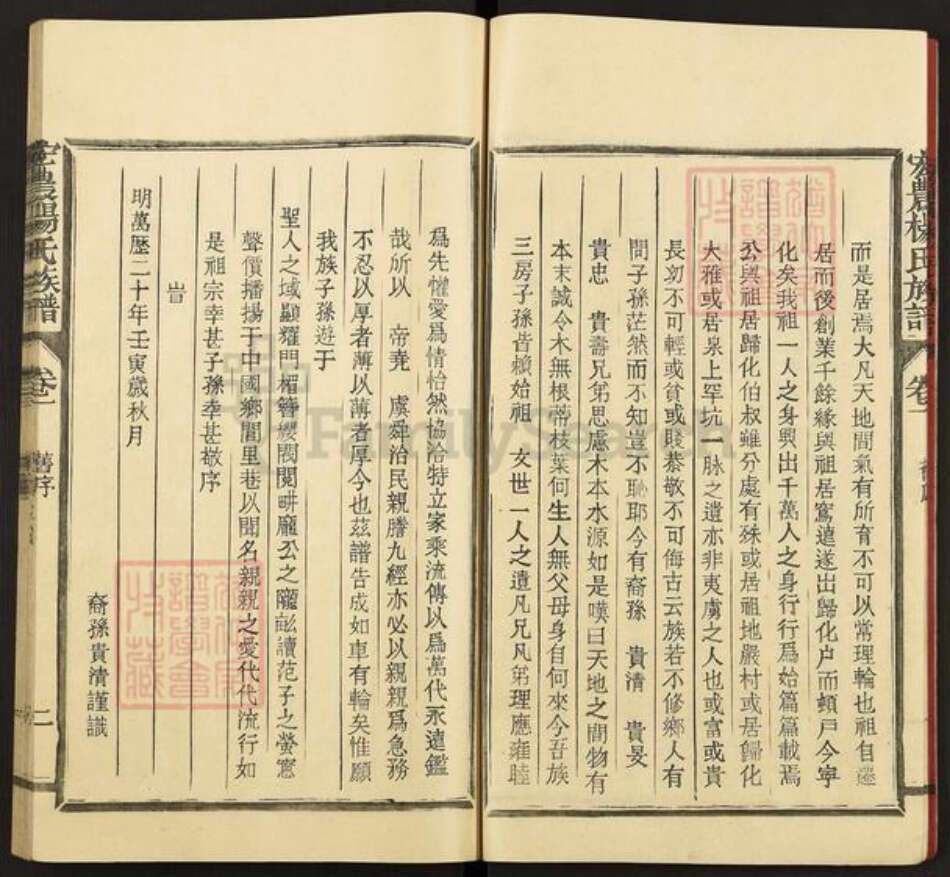 宏農楊氏族譜 卷一
而是居焉大凡天地間氣有所育不可以常理輪也祖自遷
居而後創業千餘緣與祖居窵遠遂出歸化户而頓戸今寧
化矣我祖一人之身興出千萬人之身行行爲始篇篇載焉
公與祖居歸化伯叔雖分處有殊或居祖地嚴村或居歸化
大雅或居泉上罕坑一脉之遺亦非夷虜之人也或富或貴
長㓜不可輕或貧或賤恭敬不可侮古云族若不修鄉人有
問子孫茫然而不知豈不恥耶今有裔孫 貴清 貴旻
貴忠 貴壽兄苐思慮木本水源如是嘆曰天地之間物有
本末誠令木無根蒂枝葉何生人無父母身自何來今吾族
三房子孫皆賴始祖 文世一人之遺凡凡兄苐理應雍睦
爲先懽愛爲情怡然協洽特立家乘流傳以爲萬代永遠鑑
哉所以 帝堯 虞舜治民親謄九經亦必以親親爲急務
不忍以厚者薄以薄者厚今也茲譜告成如車有輪矣惟願
我族子孫遊于
聖人之域顯耀門楣簪纓閥閱畊龐公之隴畝讀范子之螢窻
聲價播揚于中國鄉閭里巷以聞名親親之愛代代流行如
是祖宗幸甚子孫幸甚敬序
旹
明萬歷二十年壬寅歲秋月
裔孫貴清謹識
宏農楊氏族譜 卷一 舊序 二
FamilySearch